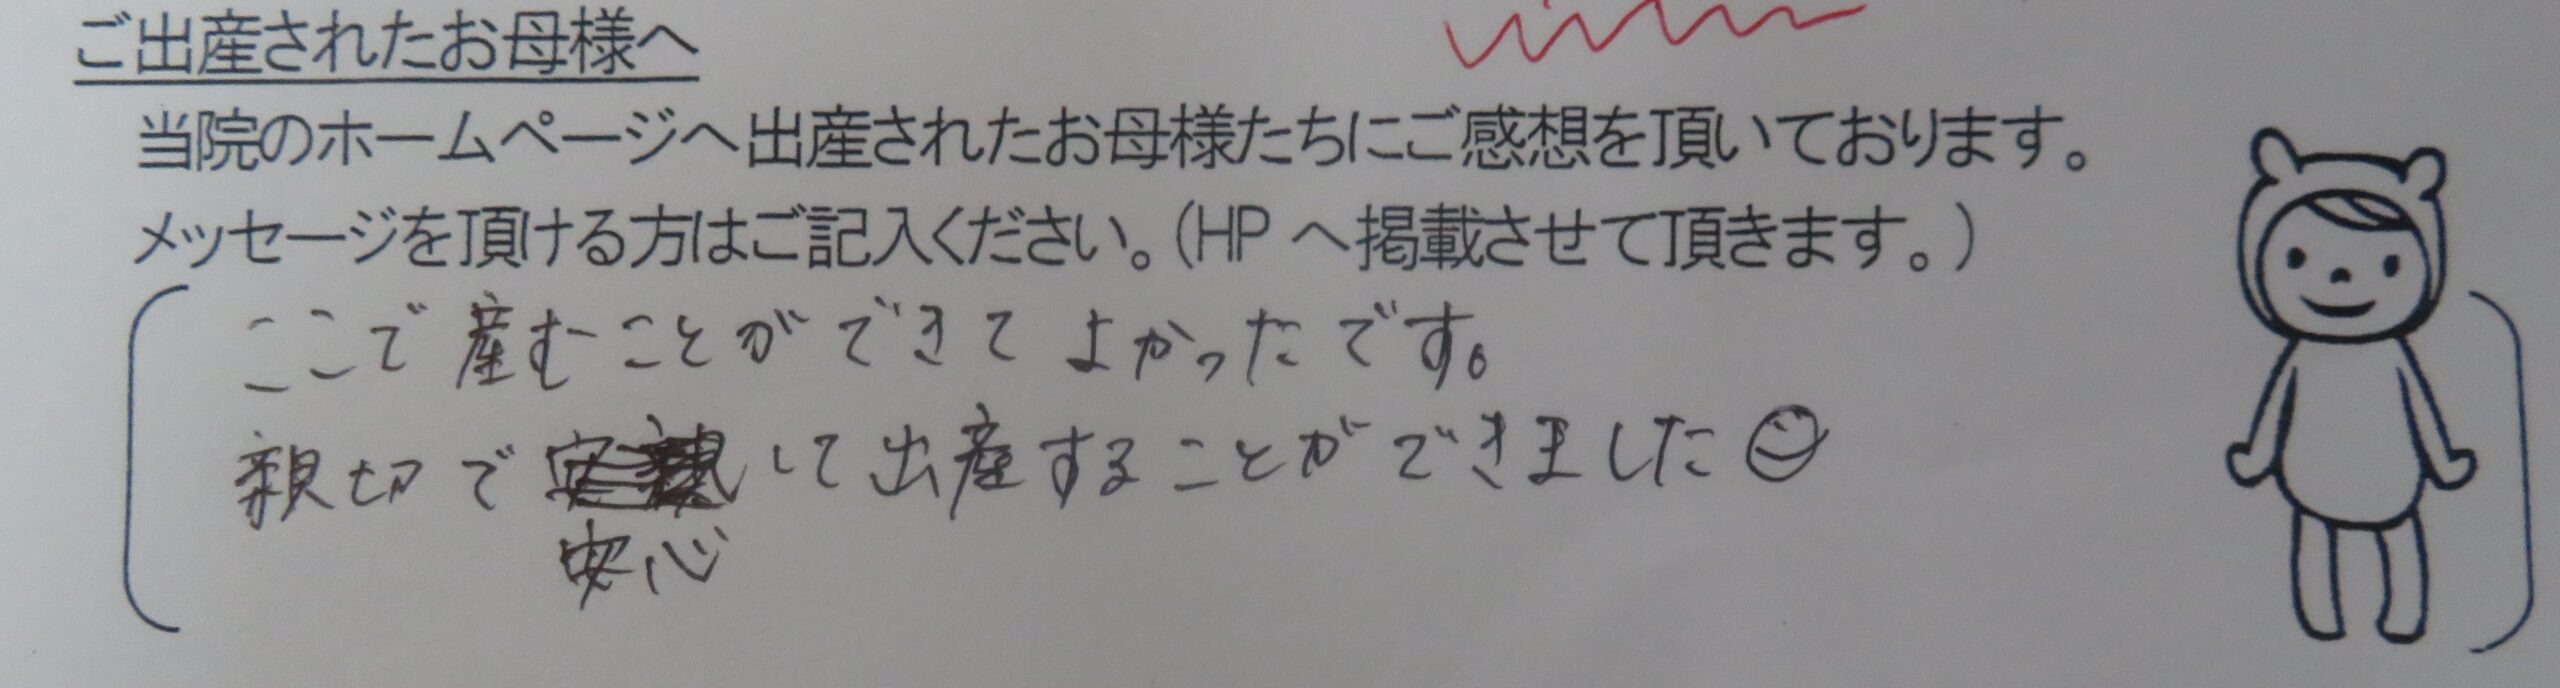 ご出産されたお母様へ
当院のホームページへ出産されたお母様たちにご感想を頂いております。
メッセージを頂ける方はご記入ください。(HPへ掲載させて頂きます。)
ここで産むことができてよかったです。
親切で して出産することができました
安心